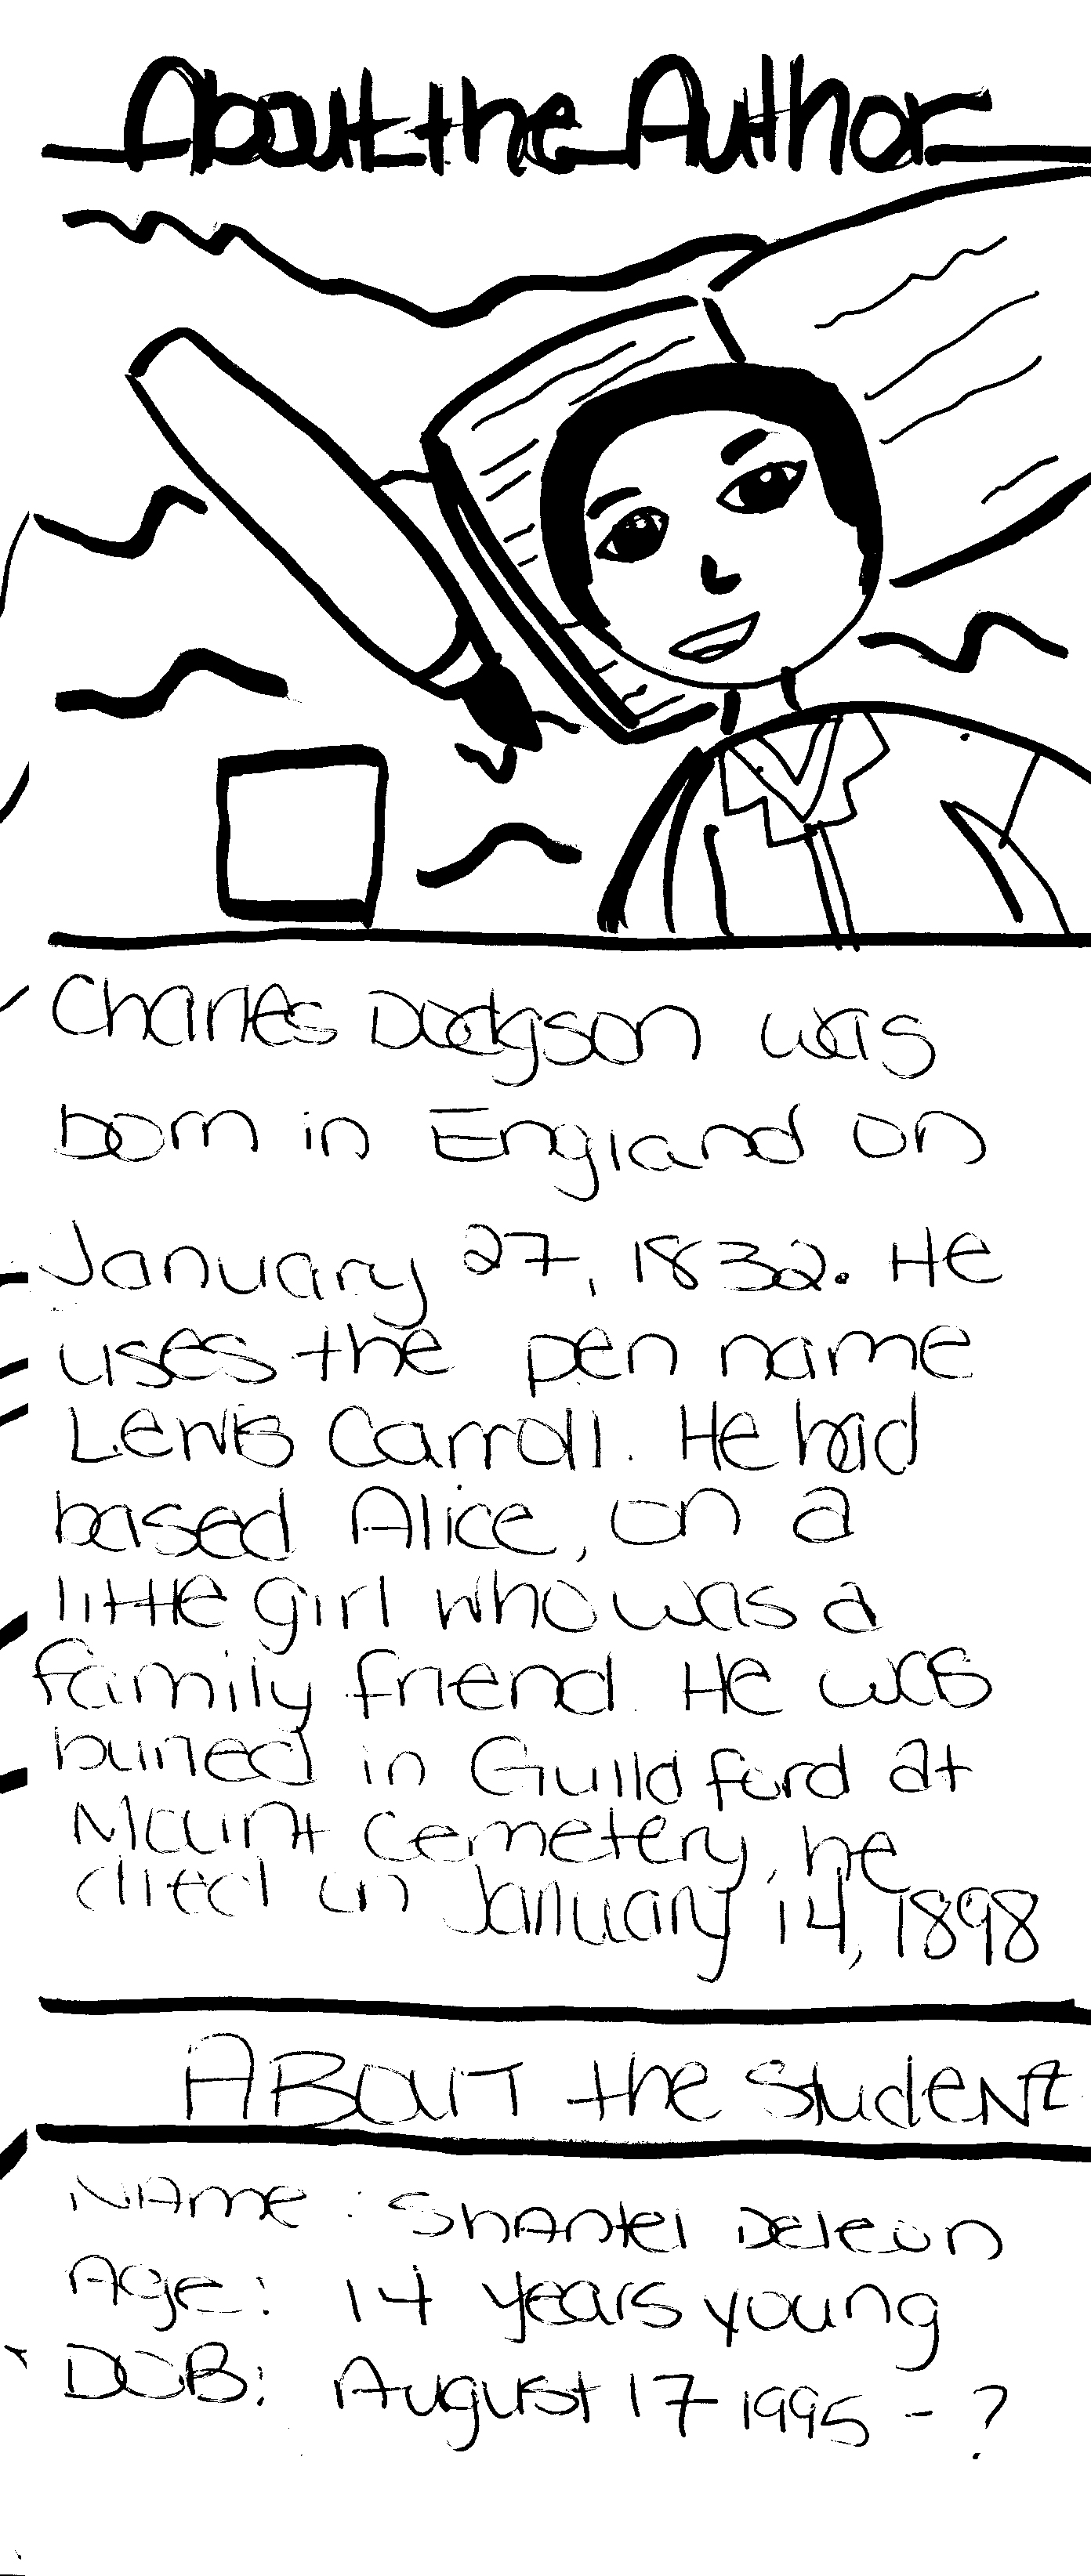 About the Author
Charles Dodgson was
born in England on
January 27, 1832. He
uses the pen name
Lewis Carroll. He had
based Alice, on a
little girl who was a
family friend. He was
buried in Guildford at
Mount Cemetery, he
died in January 14, 1898
ABOUT the StudeNt
NAme: ShAntel Deleon
Age: 14 years young
DOB: August 17 1995 - ?